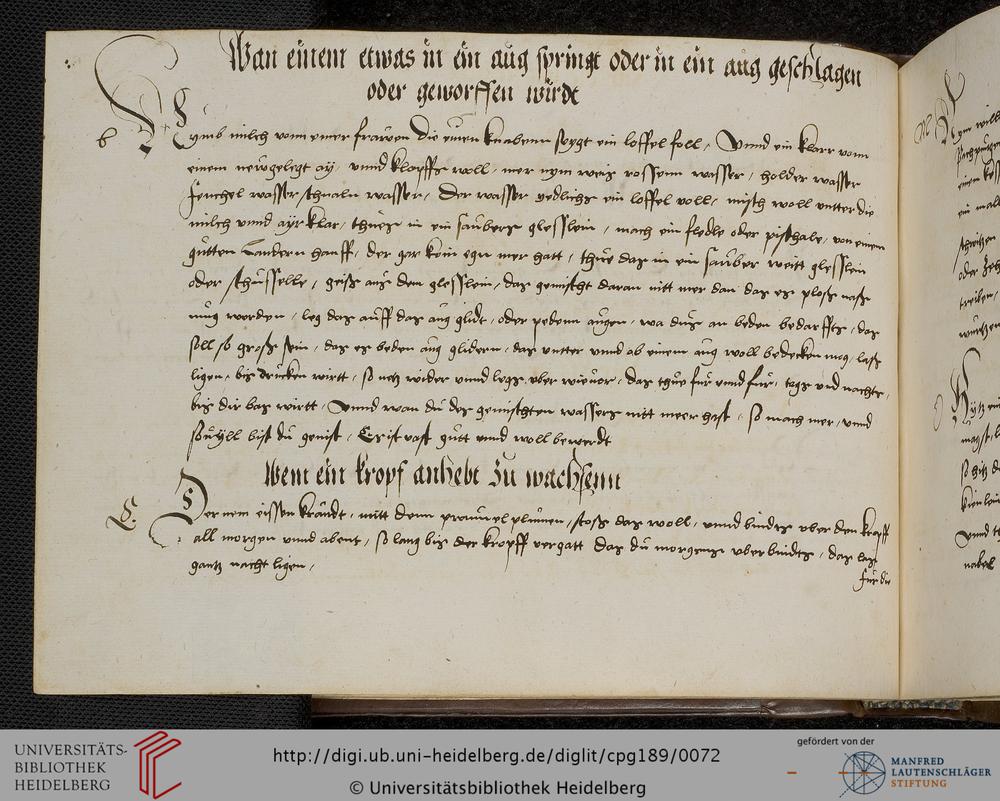 Wan einem etwas in ein aug springt oder in ein aug geschlagen
oder geworffen wirdt
b Nymb milch vonn einer frawen die einen knabenn seygt ein loffel foll, Vnnd ein klarr vonn
einem newgelegt ay, vnnd klopffs woll, mer nym weis rossenn wasser, holder wasser
fenchel wasser, wasser, Der wasser yedlichs ein loffel voll, misch woll vntter die
milch vnnd ayrklar, thues in ein saubers glesslein, mach ein fledle oder von einem
gutten hanff, der gar kein egn mer hatt, thue das in ein sauber weitt glesslein
oder schusselle, geiss aus dem glesslein, das gemischt daran nitt mer dan das es ploss nass
mug werden, leg das auff das aug glidt, oder pedenn augen, wa dus an beden bedarffts, das
soll so gross sein, das es beden aug glidern, das vntter vnnd ob einem aug woll bedecken mog, lass
ligen, bis drucken wirtt, so netz wider vnnd legs vber wieuor, das thue fur vnnd fur, tags vnd nachts,
bis dir bas wirtt, Vnnd wan du des gemischten wassers nitt meer hast, so mach mer, vnnd
souyll bist du genist, Es ist vast gutt vnnd woll bewerdt
Wem ein kropf anhebt zu wachsenn
Der nem eissen kraudt, mitt denn plumen, stoss das woll, vnnd binds vber den kropff
all morgen vnnd abent, so lang bis der kropff vergatt das du morgens vberbindts, das las
gantz nacht ligen,
fur die
UNIVERSITÄTS-
BIBLIOTHEK
HEIDELBERG
http://digi.ub.uni-heidelberg.de/diglit/cpg189/0072
© Universitätsbibliothek Heidelberg
gefördert von der
MANFRED
LAUTENSCHLÄGER
STIFTUNG